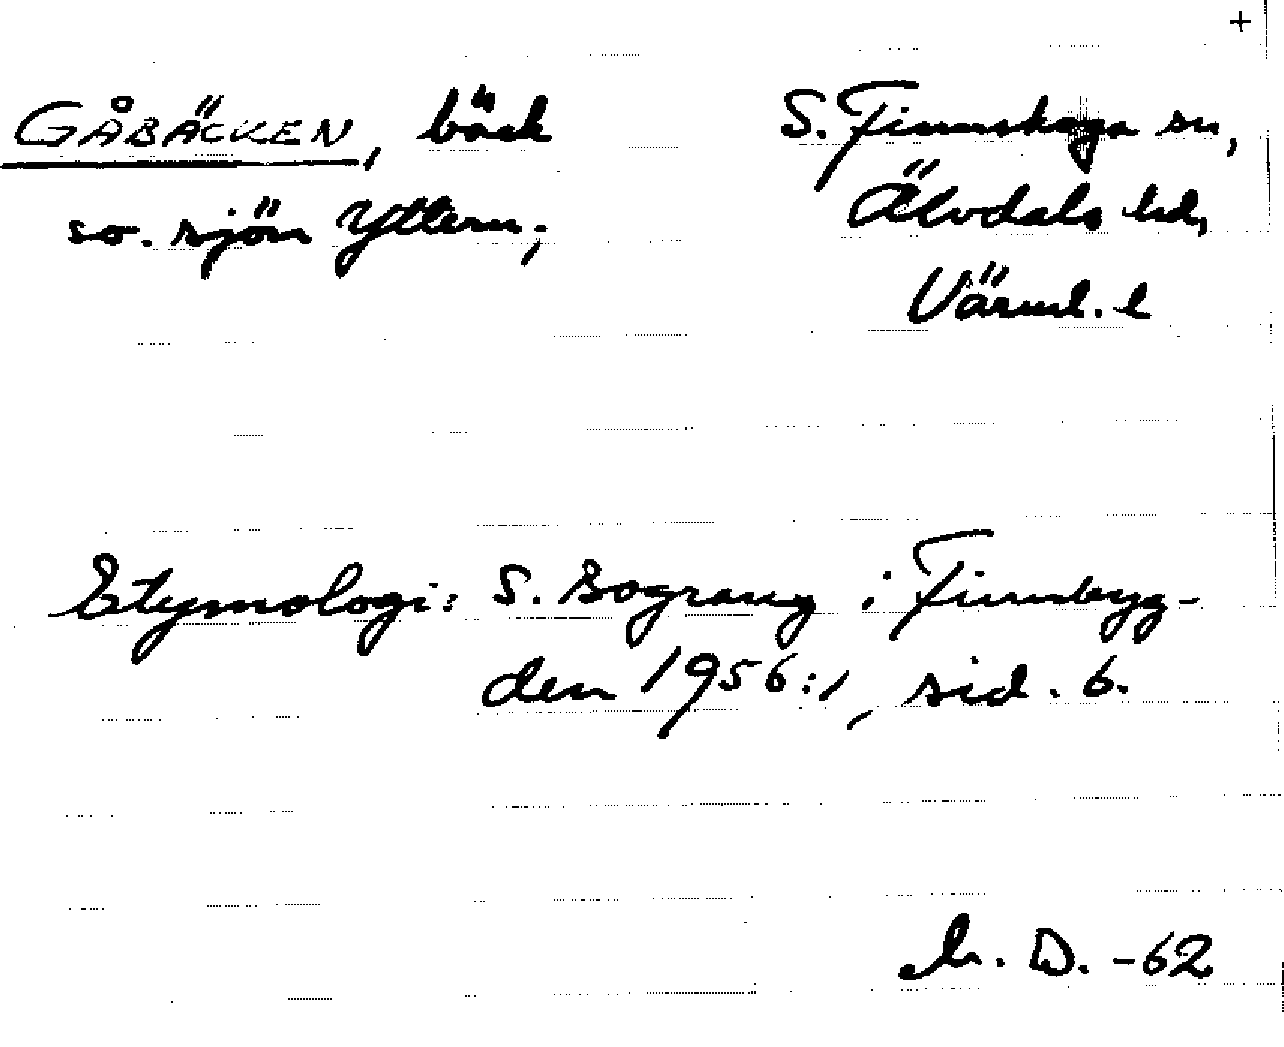 +
GÅBÄCKEN, bäck
so. sjön Yttern;
S. Finnskoga sn,
Älvdals hd,
Värml. l
Etymologi: S. Bograng i Finnbyg-
den 1956:1, sid. 6.
D. -62